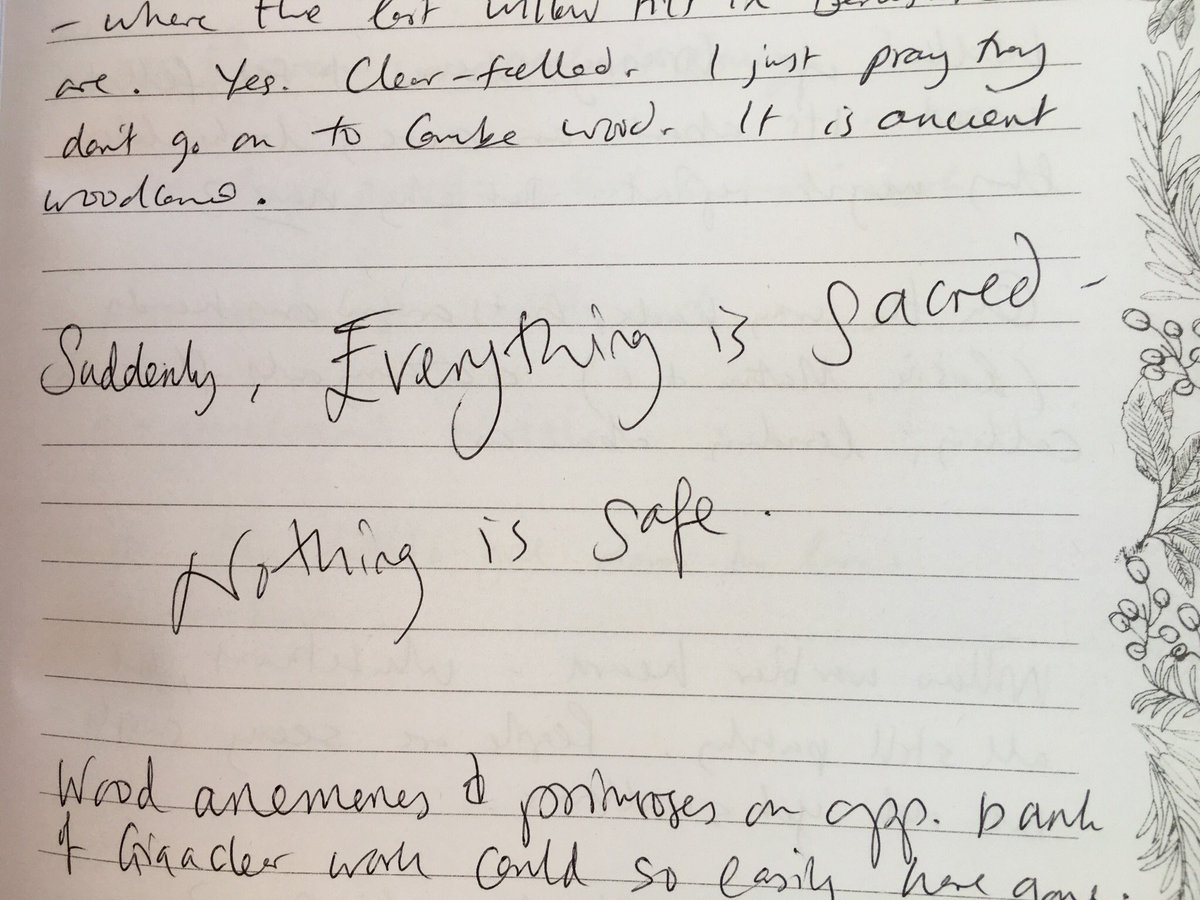 - where the last willow tits in
are. Yes. Clear-felled. I just pray they
don't go on to Combe wood. It is ancient
woodland.
Suddenly, Everything is Sacred -
Nothing is safe.
Wood anemones & primroses on opp. bank
of clear work could so easily have gone.